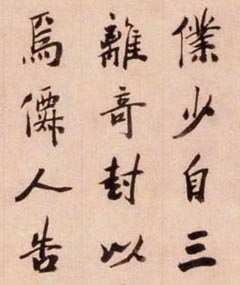 僕少自三
離奇封以
爲僊人告